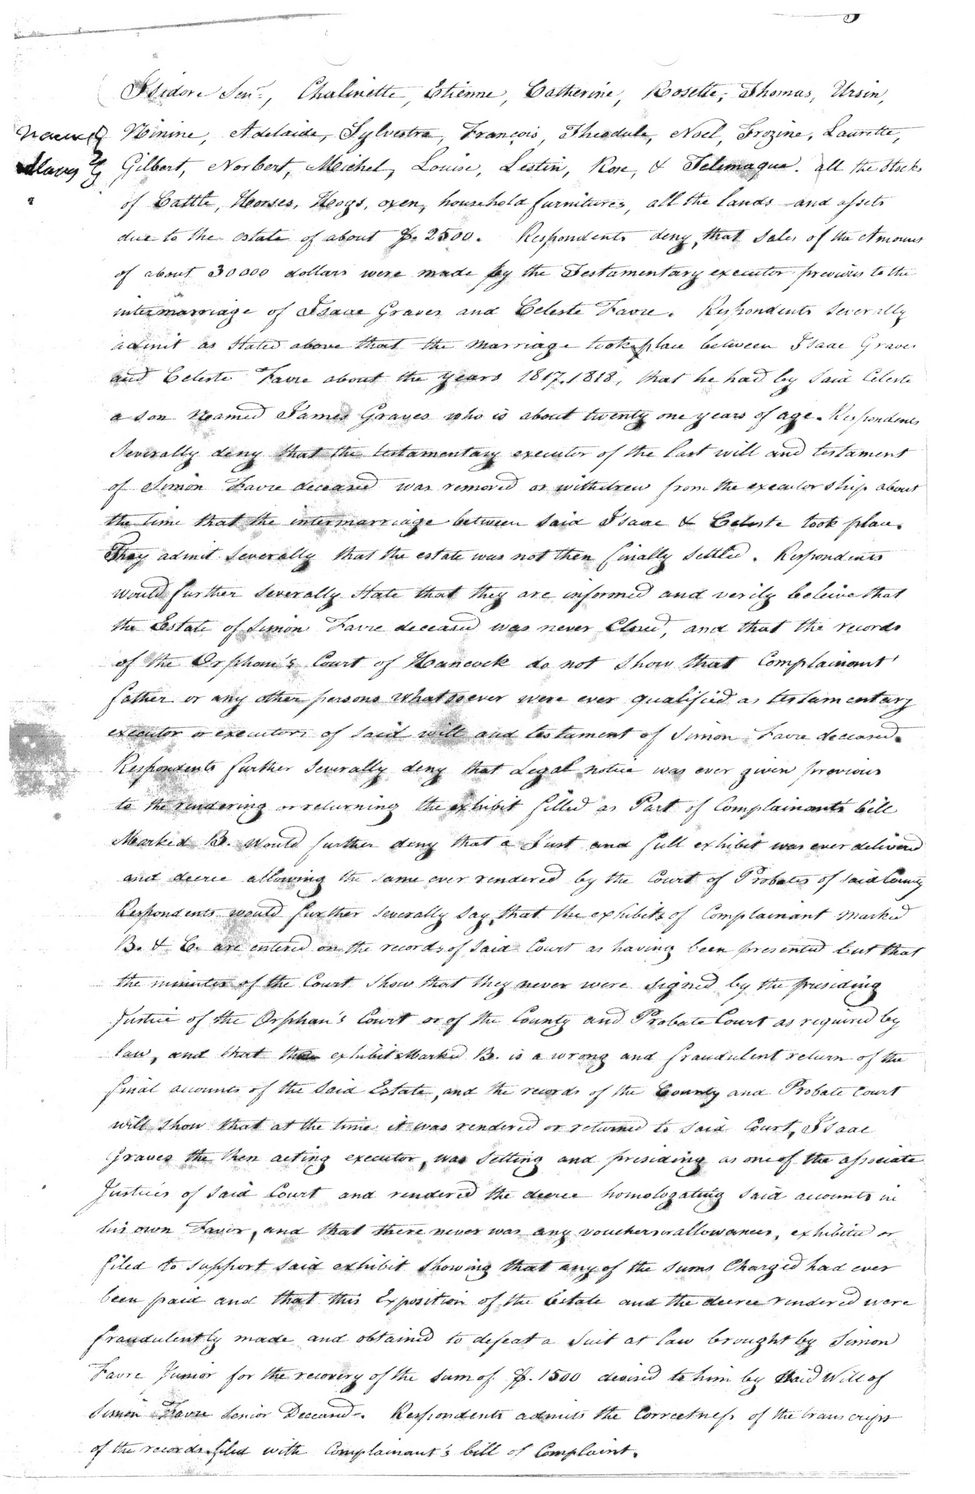 Isidore Senr., Chalinette, Etienne, Catherine, Rosette, Thomas, Ursin,
Names of
Slaves
Ninine, Adelaide, Sylvestre, François, Theodule, Noel, Frozine, Laurette,
Gilbert, Norbert, Michel, Louise, Lestin, Rose, & Telemaque. all the Stocks
of Cattle, Horses, Hogs, oxen, household furnitures, all the lands and assets
due to the estate of about $. 2500. Respondents deny, that sales of the Amount
of about 30000 dollars were made by the Testamentary executor previous to the
intermarriage of Isaac Graves and Celeste Favre. Respondents severally
admit as stated above that the marriage took place between Isaac Graves
and Celeste Favre about the years 1817.1818, that he had by said Celeste
a son named James Graves who is about twenty one years of age. Respondents
Severally deny that the testamentary executor of the last will and testament
of Simon Favre deceased was removed or withdrew from the executorship about
the time that the intermarriage between said Isaac & Celeste took place.
They admit severally that the estate was not then finally settled. Respondents
would further severally state that they are informed and verily beleive that
the Estate of Simon Favre deceased was never Closed, and that the records
of the Orphan's Court of Hancock do not show that Complainant'
father or any other persons whatsoever were ever qualified as testamentary
executor or executors of said will and testament of Simon Favre deceased.
Respondents further severally deny that Legal notice was ever given previous
to the rendering or returning the exhibit filled as Part of Complainants bill
Marked B. would further deny that a Just and full exhibit was ever delivered
and decree allowing the same ever rendered by the Court of Probates of said County
Respondents would further severally say, that the exhibits of Complainant marked
B. & C. are entered on the records of said Court as having been presented but that
the minutes of the Court show that they never were signed by the presiding
Justice of the Orphan's Court or of the County and Probate Court as required by
law, and that the exhibit Marked B. is a wrong and fraudulent return of the
final accounts of the said Estate, and the records of the County and Probate Court
will show that at the time it was rendered or returned to said Court, Isaac
Graves the then acting executor, was setting and presiding as one of the associate
Justices of said Court and rendered the decree homologating said accounts in
his own Favor, and that there never was any vouchers or allowances, exhibited or
filed to support said exhibit showing that any of the sums Charged had ever
been paid and that this Exposition of the Estate and the decree rendered were
fraudulently made and obtained to defeat a suit at law brought by Simon
Favre Junior for the recovery of the sum of $. 1500 devised to him by said Will of
Simon Favre Senior Deceased. Respondents admits the Correctness of the transcript
of the records filed with Complainant's bill of Complaint.